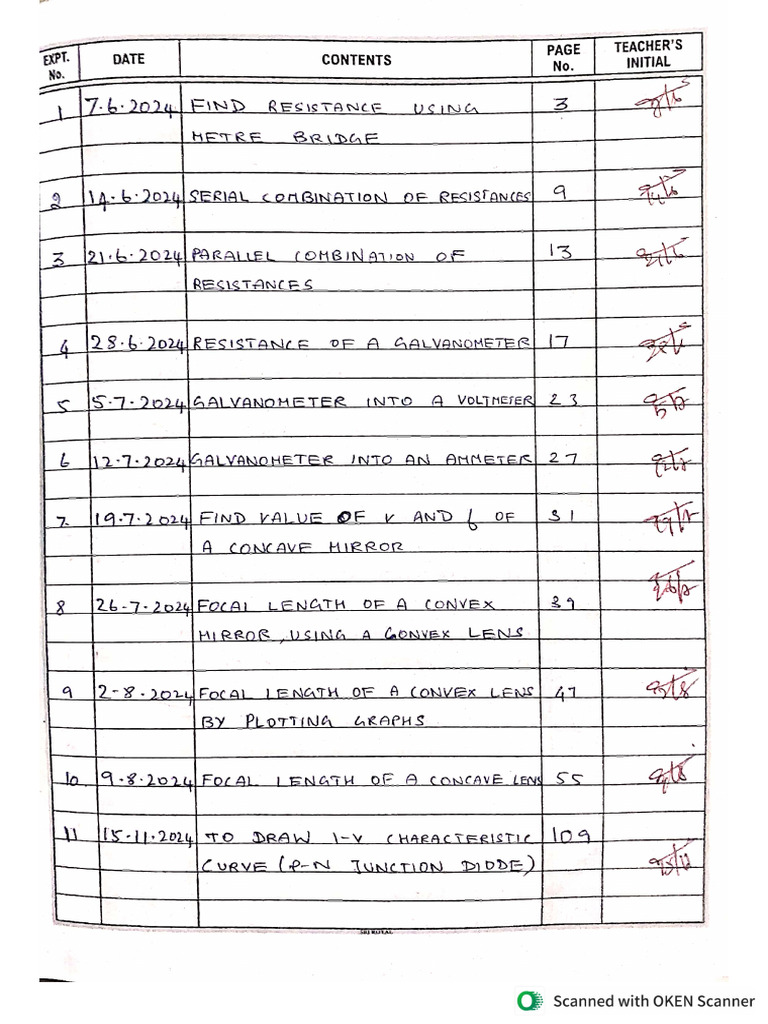 EXPT. No. DATE CONTENTS PAGE No. TEACHER'S INITIAL
1 7.6.2024 FIND RESISTANCE USING 3
METRE BRIDGE
2 14.6.2024 SERIAL COMBINATION OF RESISTANCES 9
3 21.6.2024 PARALLEL COMBINATION OF 13
RESISTANCES
4 28.6.2024 RESISTANCE OF A GALVANOMETER 17
5 5.7.2024 GALVANOMETER INTO A VOLTMETER 23
6 12.7.2024 GALVANOMETER INTO AN AMMETER 27
7. 19.7.2024 FIND VALUE OF V AND f OF 31
A CONCAVE MIRROR
8 26-7.2024 FOCAL LENGTH OF A CONVEX 39
MIRROR, USING A CONVEX LENS
9 2-8.2024 FOCAL LENGTH OF A CONVEX LENS 47
BY PLOTTING GRAPHS
10. 9.8.2024 FOCAL LENGTH OF A CONCAVE LENS 55
11 15-11.2024 TO DRAW I-V CHARACTERISTIC 109
CURVE (P-N JUNCTION DIODE)
SRI ROYAL
Scanned with OKEN Scanner